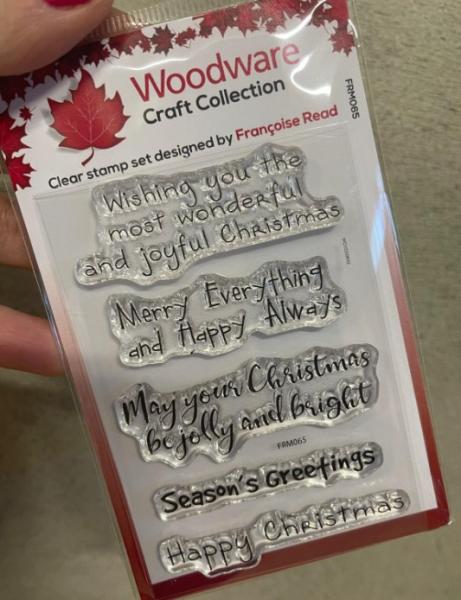 Woodware
Craft Collection
FRM065
Clear stamp set designed by Françoise Read
Wishing you the
most wonderful
and joyful Christmas
Merry Everything
and Happy Always
May your Christmas
be jolly and bright
FRM065
Season's Greetings
Happy Christmas